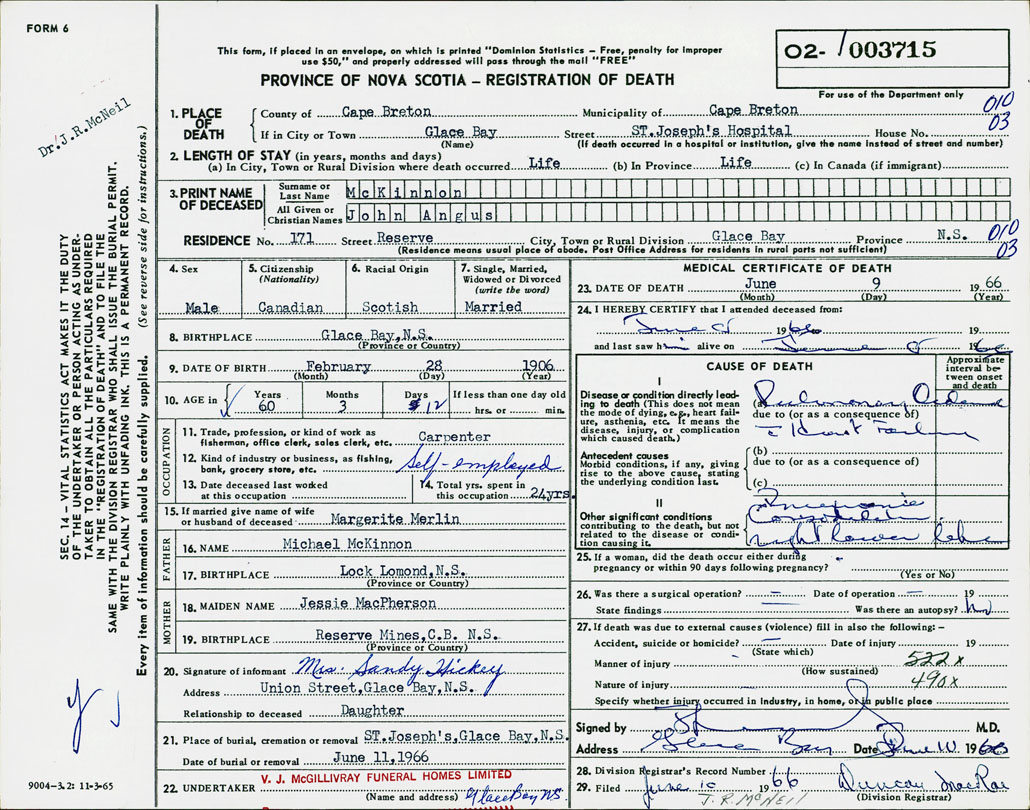 FORM 6
This form, if placed in an envelope, on which is printed "Dominion Statistics – Free, penalty for improper
use $50," and properly addressed will pass through the mail "FREE"
PROVINCE OF NOVA SCOTIA – REGISTRATION OF DEATH
02- 003715
For use of the Department only
Dr. J.R. McNeil
SEC. 14 – VITAL STATISTICS ACT MAKES IT THE DUTY
OF THE UNDERTAKER OR PERSON ACTING AS UNDER-
TAKER TO OBTAIN ALL THE PARTICULARS REQUIRED
IN THE "REGISTRATION OF DEATH" AND TO FILE THE
SAME WITH THE DIVISION REGISTRAR WHO SHALL ISSUE THE BURIAL PERMIT.
WRITE PLAINLY WITH UNFADING INK. THIS IS A PERMANENT RECORD.
Every item of information should be carefully supplied. (See reverse side for instructions.)
1. PLACE OF DEATH
County of Cape Breton Municipality of Cape Breton 010
If in City or Town Glace Bay Street ST.Joseph's Hospital House No. 03
(Name) (If death occurred in a hospital or institution, give the name instead of street and number)
2. LENGTH OF STAY (in years, months and days)
(a) In City, Town or Rural Division where death occurred Life (b) In Province Life (c) In Canada (if immigrant)
3. PRINT NAME OF DECEASED
Surname or Last Name McKinnon
All Given or Christian Names John Angus
RESIDENCE No. 171 Street Reserve City, Town or Rural Division Glace Bay Province N.S. 010
(Residence means usual place of abode. Post Office Address for residents in rural parts not sufficient) 03
4. Sex
Male
5. Citizenship
(Nationality)
Canadian
6. Racial Origin
Scotish
7. Single, Married,
Widowed or Divorced
(write the word)
Married
8. BIRTHPLACE Glace Bay,N.S.
(Province or Country)
9. DATE OF BIRTH February 28 1906
(Month) (Day) (Year)
10. AGE in Years 60 Months 3 Days 12 If less than one day old
hrs. or min.
OCCUPATION
11. Trade, profession, or kind of work as
fisherman, office clerk, sales clerk, etc. Carpenter
12. Kind of industry or business, as fishing,
bank, grocery store, etc. Self-employed
13. Date deceased last worked
at this occupation
14. Total yrs. spent in
this occupation 24yrs.
15. If married give name of wife
or husband of deceased Margerite Merlin
FATHER
16. NAME Michael McKinnon
17. BIRTHPLACE Lock Lomond,N.S.
(Province or Country)
MOTHER
18. MAIDEN NAME Jessie MacPherson
19. BIRTHPLACE Reserve Mines,C.B. N.S.
(Province or Country)
20. Signature of informant Mrs. Sandy Hickey
Address Union Street,Glace Bay,N.S.
Relationship to deceased Daughter
21. Place of burial, cremation or removal ST.Joseph's,Glace Bay,N.S.
Date of burial or removal June 11,1966
V. J. McGILLIVRAY FUNERAL HOMES LIMITED
22. UNDERTAKER (Name and address) Glace Bay NS
9004-3.2: 11-3-65
MEDICAL CERTIFICATE OF DEATH
23. DATE OF DEATH June 9 1966
(Month) (Day) (Year)
24. I HEREBY CERTIFY that I attended deceased from:
June 1966 19
and last saw him alive on June 1966
CAUSE OF DEATH
Approximate
interval be-
tween onset
and death
I
Disease or condition directly lead-
ing to death (This does not mean
the mode of dying, e.g., heart fail-
ure, asthenia, etc. It means the
disease, injury, or complication
which caused death.)
(a) Pulmonary Oedema
due to (or as a consequence of)
Heart Failure
Antecedent causes
Morbid conditions, if any, giving
rise to the above cause, stating
the underlying condition last.
(b)
due to (or as a consequence of)
(c)
II
Other significant conditions
contributing to the death, but not
related to the disease or condi-
tion causing it.
Pneumonic
Consolidation
right lower lobe
25. If a woman, did the death occur either during
pregnancy or within 90 days following pregnancy? –
(Yes or No)
26. Was there a surgical operation? – Date of operation – 19
State findings Was there an autopsy? No
27. If death was due to external causes (violence) fill in also the following: –
Accident, suicide or homicide? – Date of injury 19
(State which)
Manner of injury 522x
(How sustained)
Nature of injury 490x
Specify whether injury occurred in industry, in home, or in public place
Signed by M.D.
Address Glace Bay Date June 10 1966
28. Division Registrar's Record Number 66
29. Filed June 10 19 Duncan MacRae
J.R. McNeil (Division Registrar)